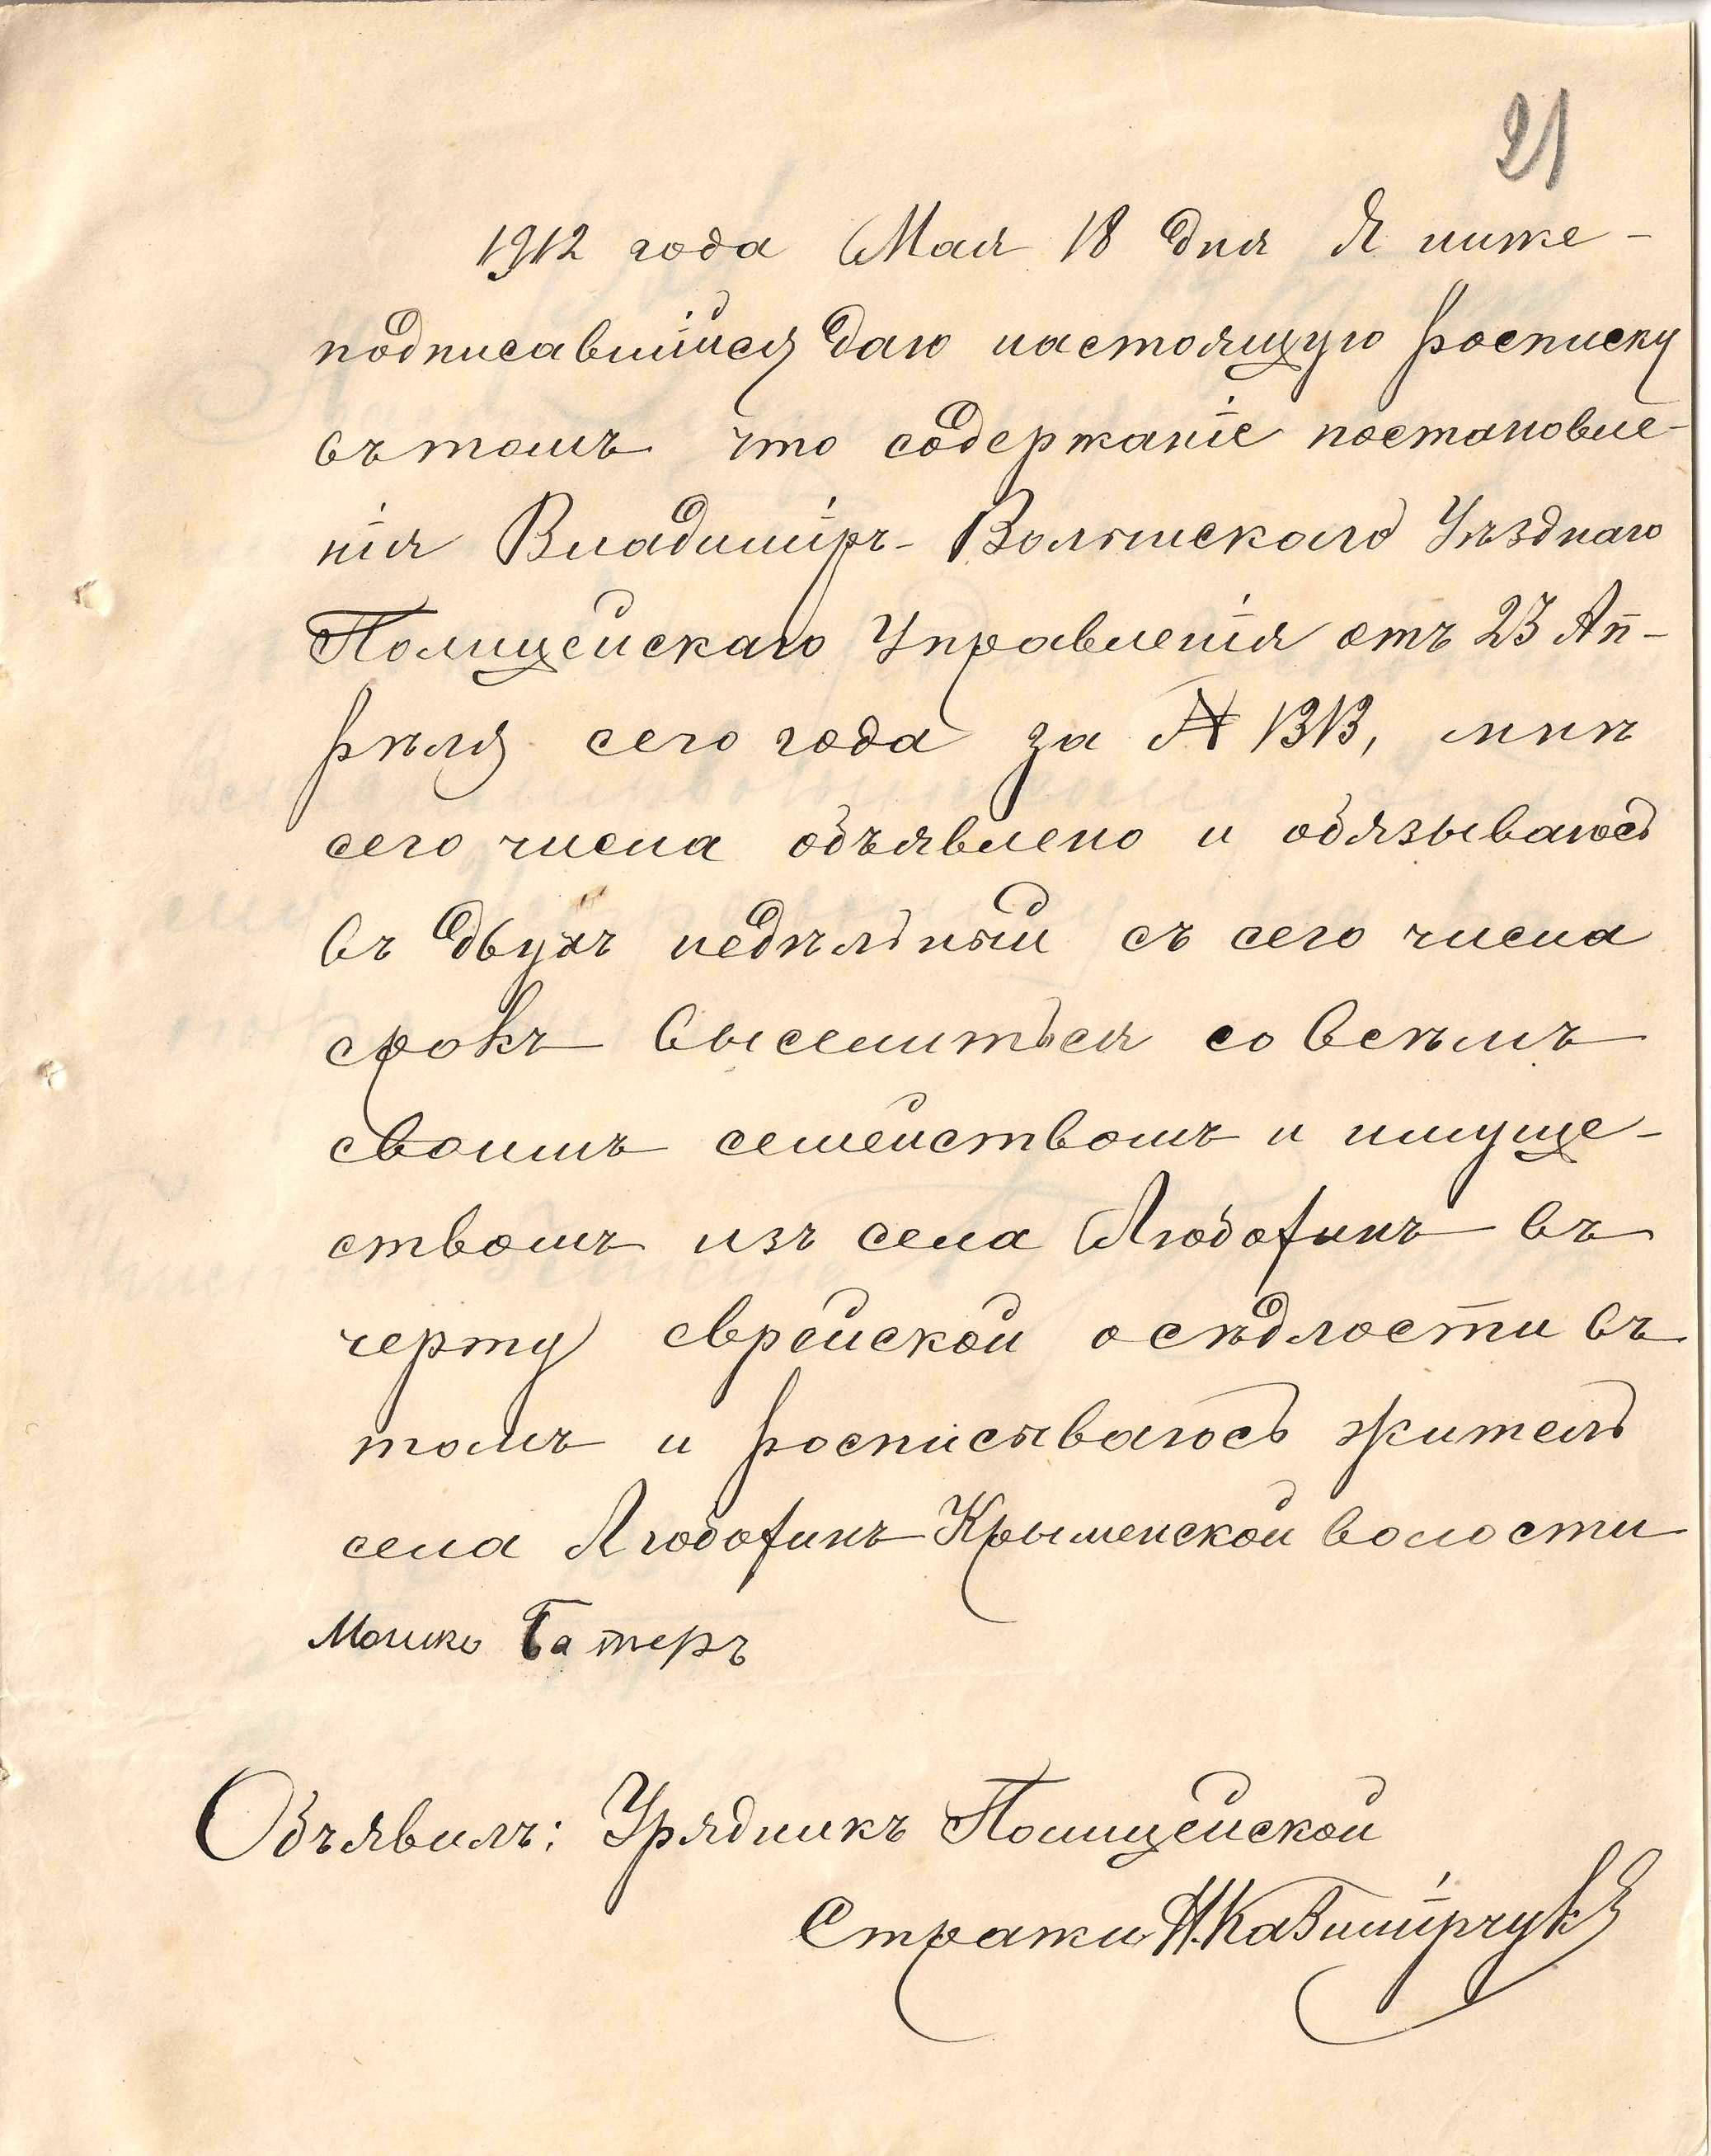 21
1912 года Мая 18 дня Я ниже-
подписавшийся даю настоящую росписку
въ томъ что содержаніе постановле-
нія Владиміръ-Волынскаго Уѣзднаго
Полицейскаго Управленія отъ 23 Ап-
рѣля сего года за № 1313, мнѣ
сего числа объявлено и обязываюсь
въ двухъ недѣльный съ сего числа
срокъ выселиться со всѣмъ
своимъ семействомъ и имуще-
ствомъ изъ села Людофинъ въ
черту еврейской осѣдлости въ
томъ и росписываюсь житель
села Людофинъ Крыменской волости
Мошко Батеръ
Объявилъ: Урядникъ Полицейской
Стражи Н. Казимірчукъ